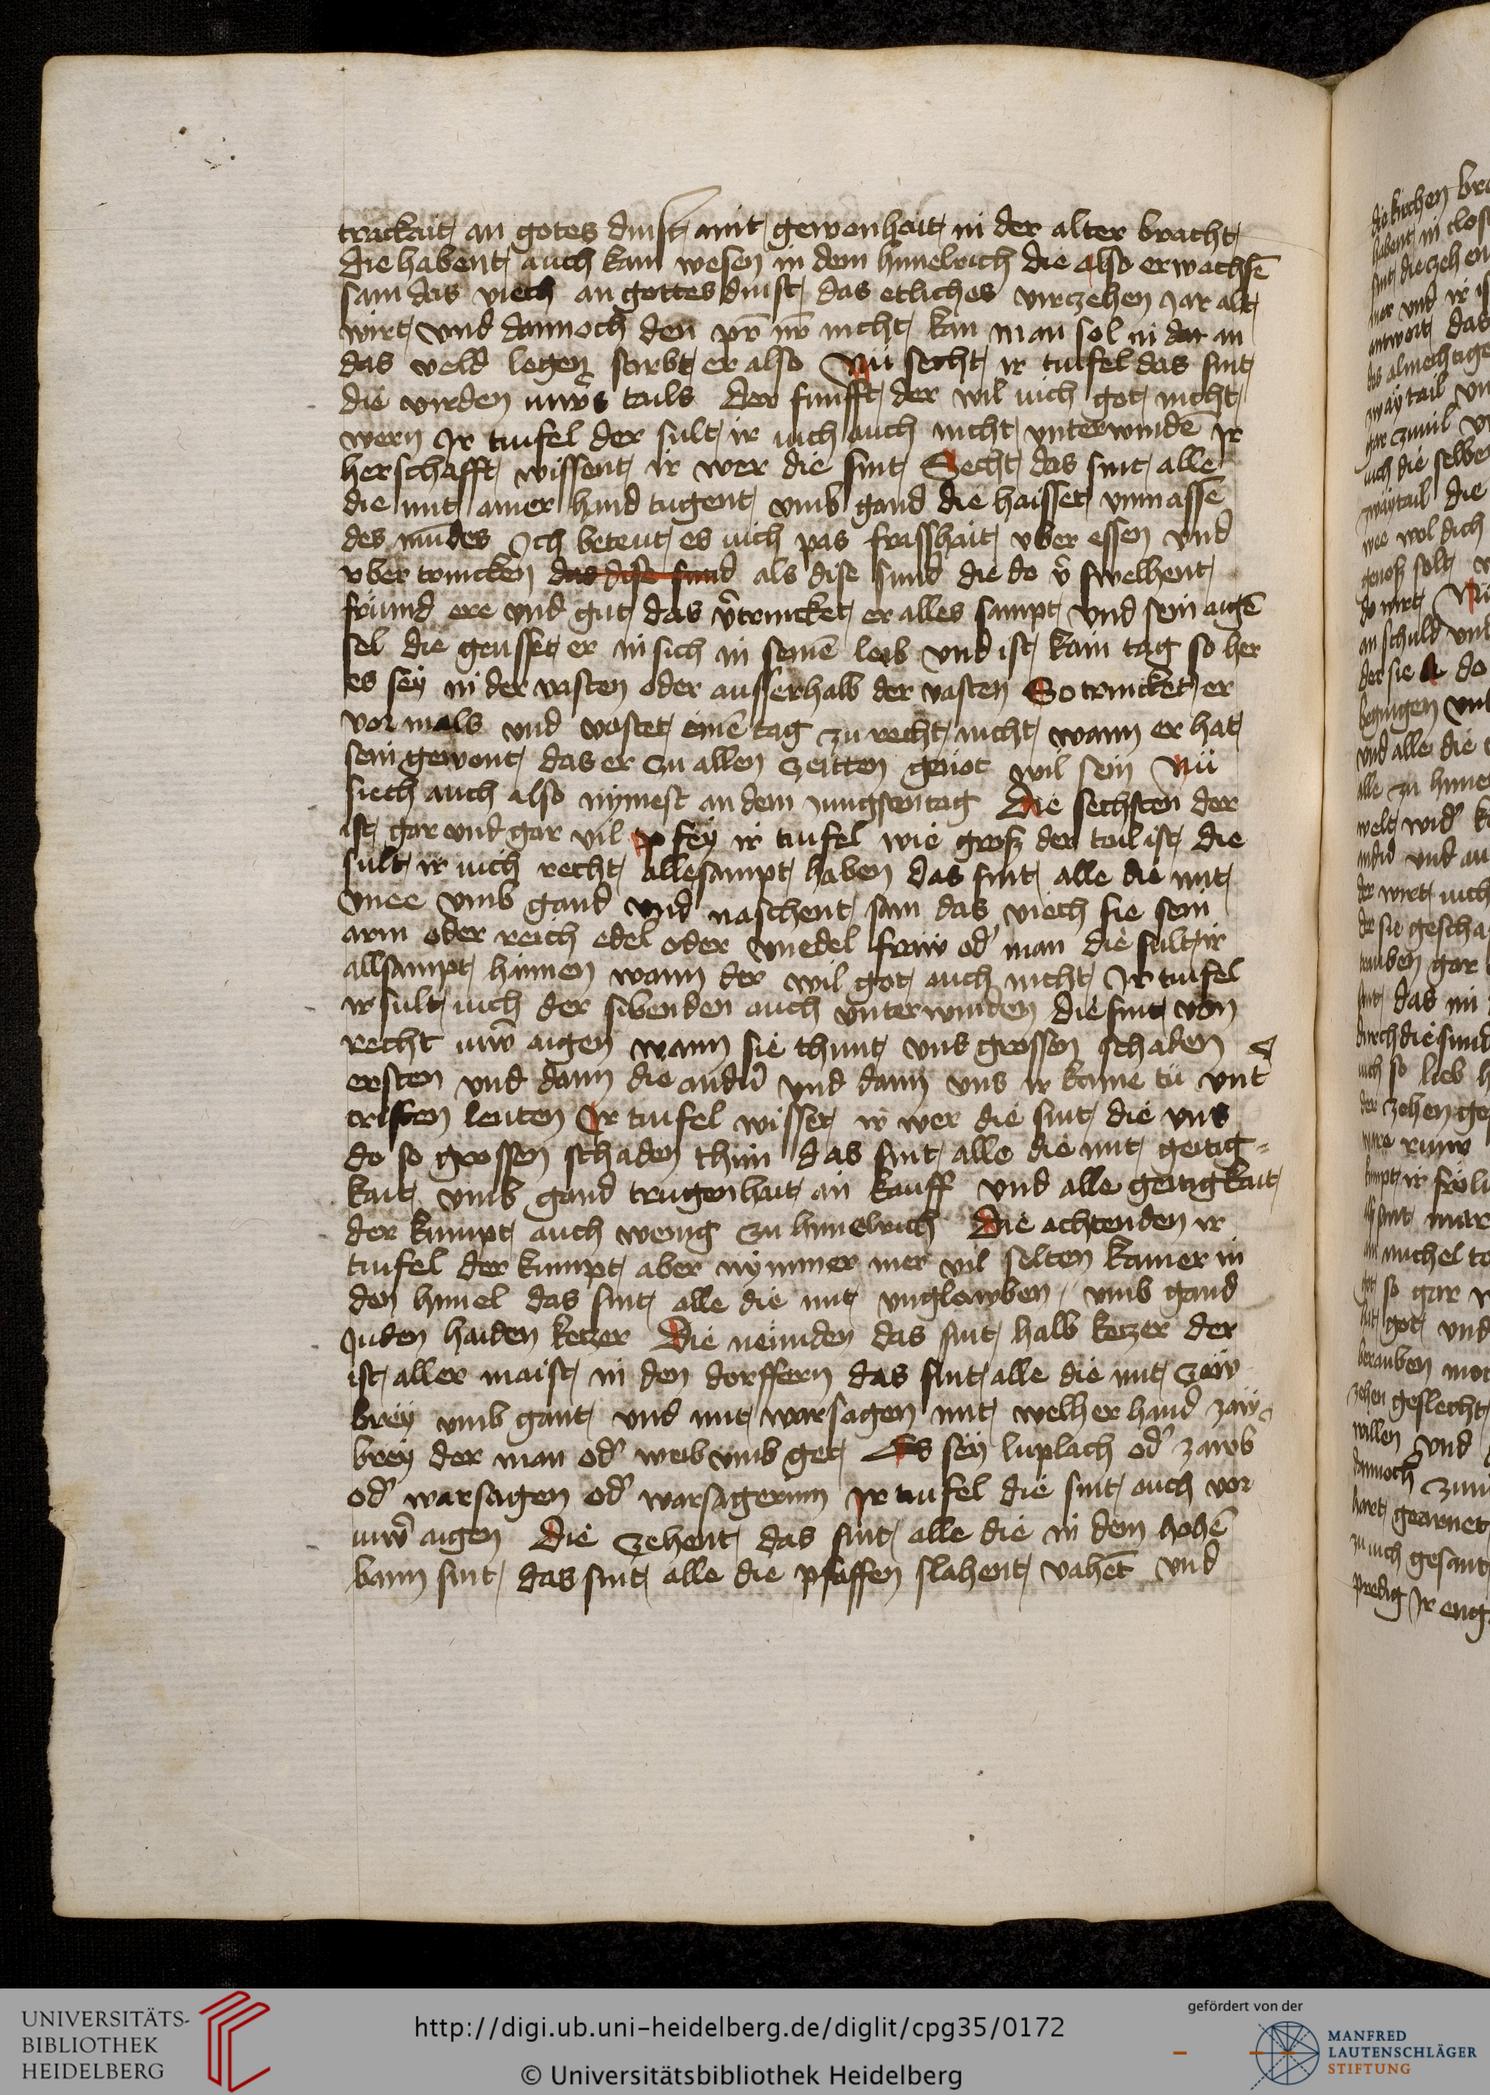 trackait an gotes dinst mit gewonhait in der alter bracht
die habent auch kain wesen in dem himelrich die also erwachsē
sam das viech an gottes dinst das etliches virczehen Jar alt
wirt vnd dannoch den pr̄ nr̄ nicht kan man sol in dar an
das veld legen stirbt er also Nü secht ir tiufel das sint
die virden iuwers tails der funfft der wil iuch got nicht
wern Ir tiufel der sult ir iuch auch nicht vnterwindē Ir
herschafft wissent ir wer die sint Secht das sint alle
die mit ainer hand tugent vmb gand die haisset vnmasse
des mūdes Ich beteut es iuch pas frasshait vber essen vnd
vber trincken das dise sund als dise sund die do v̄ swelhent
friund ere vnd gut das v̄trincket er alles sampt vnd sein aigē
sel die geusset er in sich in seinē leib vnd ist kain tag so her
es sey in der vasten oder ausserhalb der vasten So trincket er
vor mals vnd vastet einē tag zu recht nicht wann er hat
sein gewont das er zu allen zeitten genot wil sein Nü
siech auch also nymest an dem Jungsten tag Die sechsten der
ist gar vnd gar vil pfey ir tiufel wie groß der tail ist die
sult ir iuch recht allesampt haben das sint alle die mit
vnee vmb gand vnd naschent sam das viech sie sein
arm oder reich edel oder vnedel fraw od' man die sult ir
allsampt hinnen wann der wil got auch nicht Ir tiufel
ir sult iuch der sibenden auch vnterwinden die sint von
recht iuw̄ aigen wann sie thunt vns grossen schaden
ersten vnd dann die andn̄ vnd dann vns ir kome tü vnt
cristen leuten Ir tiufel wisset ir wer die sint die vns
do so grossen schaden thun das sint alle die mit geitig-
kait vmb gand trugenhait an kauff vnd alle geitigkait
der kumpt auch wenig zu himelrich Die achtenden ir
tiufel der kumpt aber nymmer mer vil selten kainer in
den himel das sint alle die mit vnglawben vmb gand
Juden haiden ketzer Die neunden das sint halb ketzer der
ist aller maist in den dorffern das sint alle die mit zaw
brey vmb gant vnd mit warsagen mit welher hand zaw
brey der man od' weib vmb get Es sey luplach od' zawb
od' warsagen od' warsagerinn Ir tiufel die sint auch vor
iuw̄ aigen Die zehent das sint alle die in dem hohē
bann sint das sint alle die pfaffen slahent vahēt vnd
UNIVERSITÄTS-
BIBLIOTHEK
HEIDELBERG
http://digi.ub.uni-heidelberg.de/diglit/cpg35/0172
© Universitätsbibliothek Heidelberg
gefördert von der
MANFRED
LAUTENSCHLÄGER
STIFTUNG